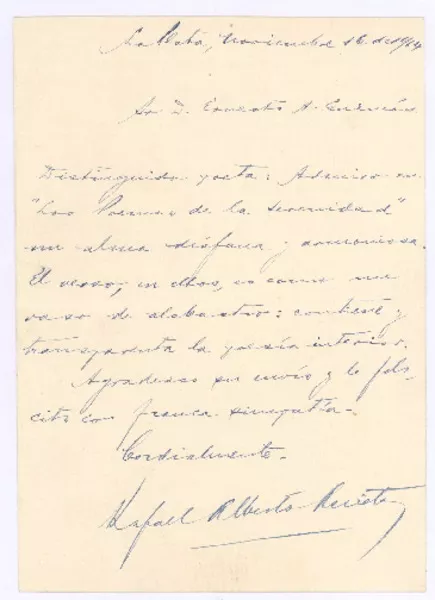 La Plata, Noviembre 16 de 1914
Sr D. Ernesto A. Guzmán
Distinguido poeta: Admiro en
"Los Poemas de la serenidad"
un alma diáfana y armoniosa.
El verso, en ellos, es como un
vaso de alabastro: contiene y
transparenta la poesía interior.
Agradezco su envío y lo feli-
cito con franca simpatía.
Cordialmente.
Rafael Alberto Arrieta